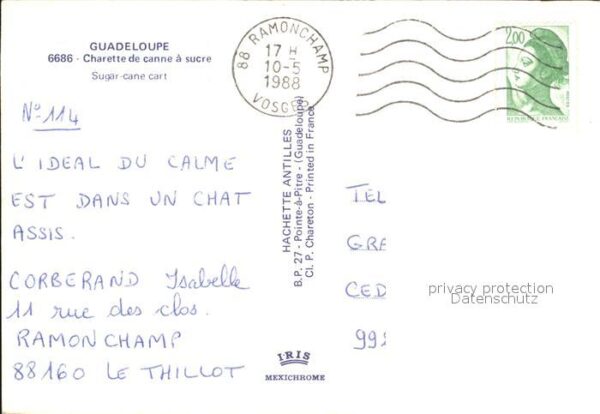 GUADELOUPE
6686 - Charette de canne à sucre
Sugar-cane cart
N° 114
L'IDEAL DU CALME
EST DANS UN CHAT
ASSIS.
CORBERAND Isabelle
11 rue des clos.
RAMONCHAMP
88160 LE THILLOT
88 RAMONCHAMP
17 H
10-5
1988
VOSGES
HACHETTE ANTILLES
B.P. 27 - Pointe-à-Pitre - (Guadeloupe)
Cl. P. Chareton - Printed in France
IRIS
MEXICHROME
2,00
REPUBLIQUE FRANÇAISE
TEL
GRE
CED
privacy protection
Datenschutz